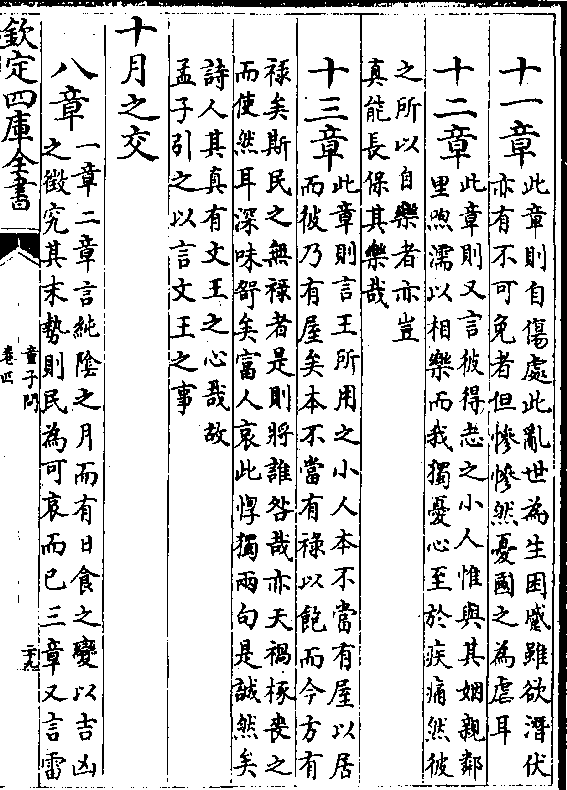 十一章
此章則自傷處此亂世為生困蹙雖欲潛伏
亦有不可免者但慘慘然憂國之為虐耳
十二章
此章則又言彼得志之小人惟與其姻親鄰
里喣濡以相樂而我獨憂心至於疾痛然彼
之所以自樂者亦豈
真能長保其樂哉
十三章
此章則言王所用之小人本不當有屋以居
而彼乃有屋矣本不當有祿以飽而今方有
祿矣斯民之無祿者是則將誰咎哉亦天禍椓喪之
而使然耳深味哿矣富人哀此惸獨兩句是誠然矣
詩人其真有文王之心哉故
孟子引之以言文王之事
十月之交
八章
一章二章言純陰之月而有日食之變以吉凶
之徵究其末勢則民為可哀而已三章又言雷
欽定四庫全書
童子問
卷四
二十九